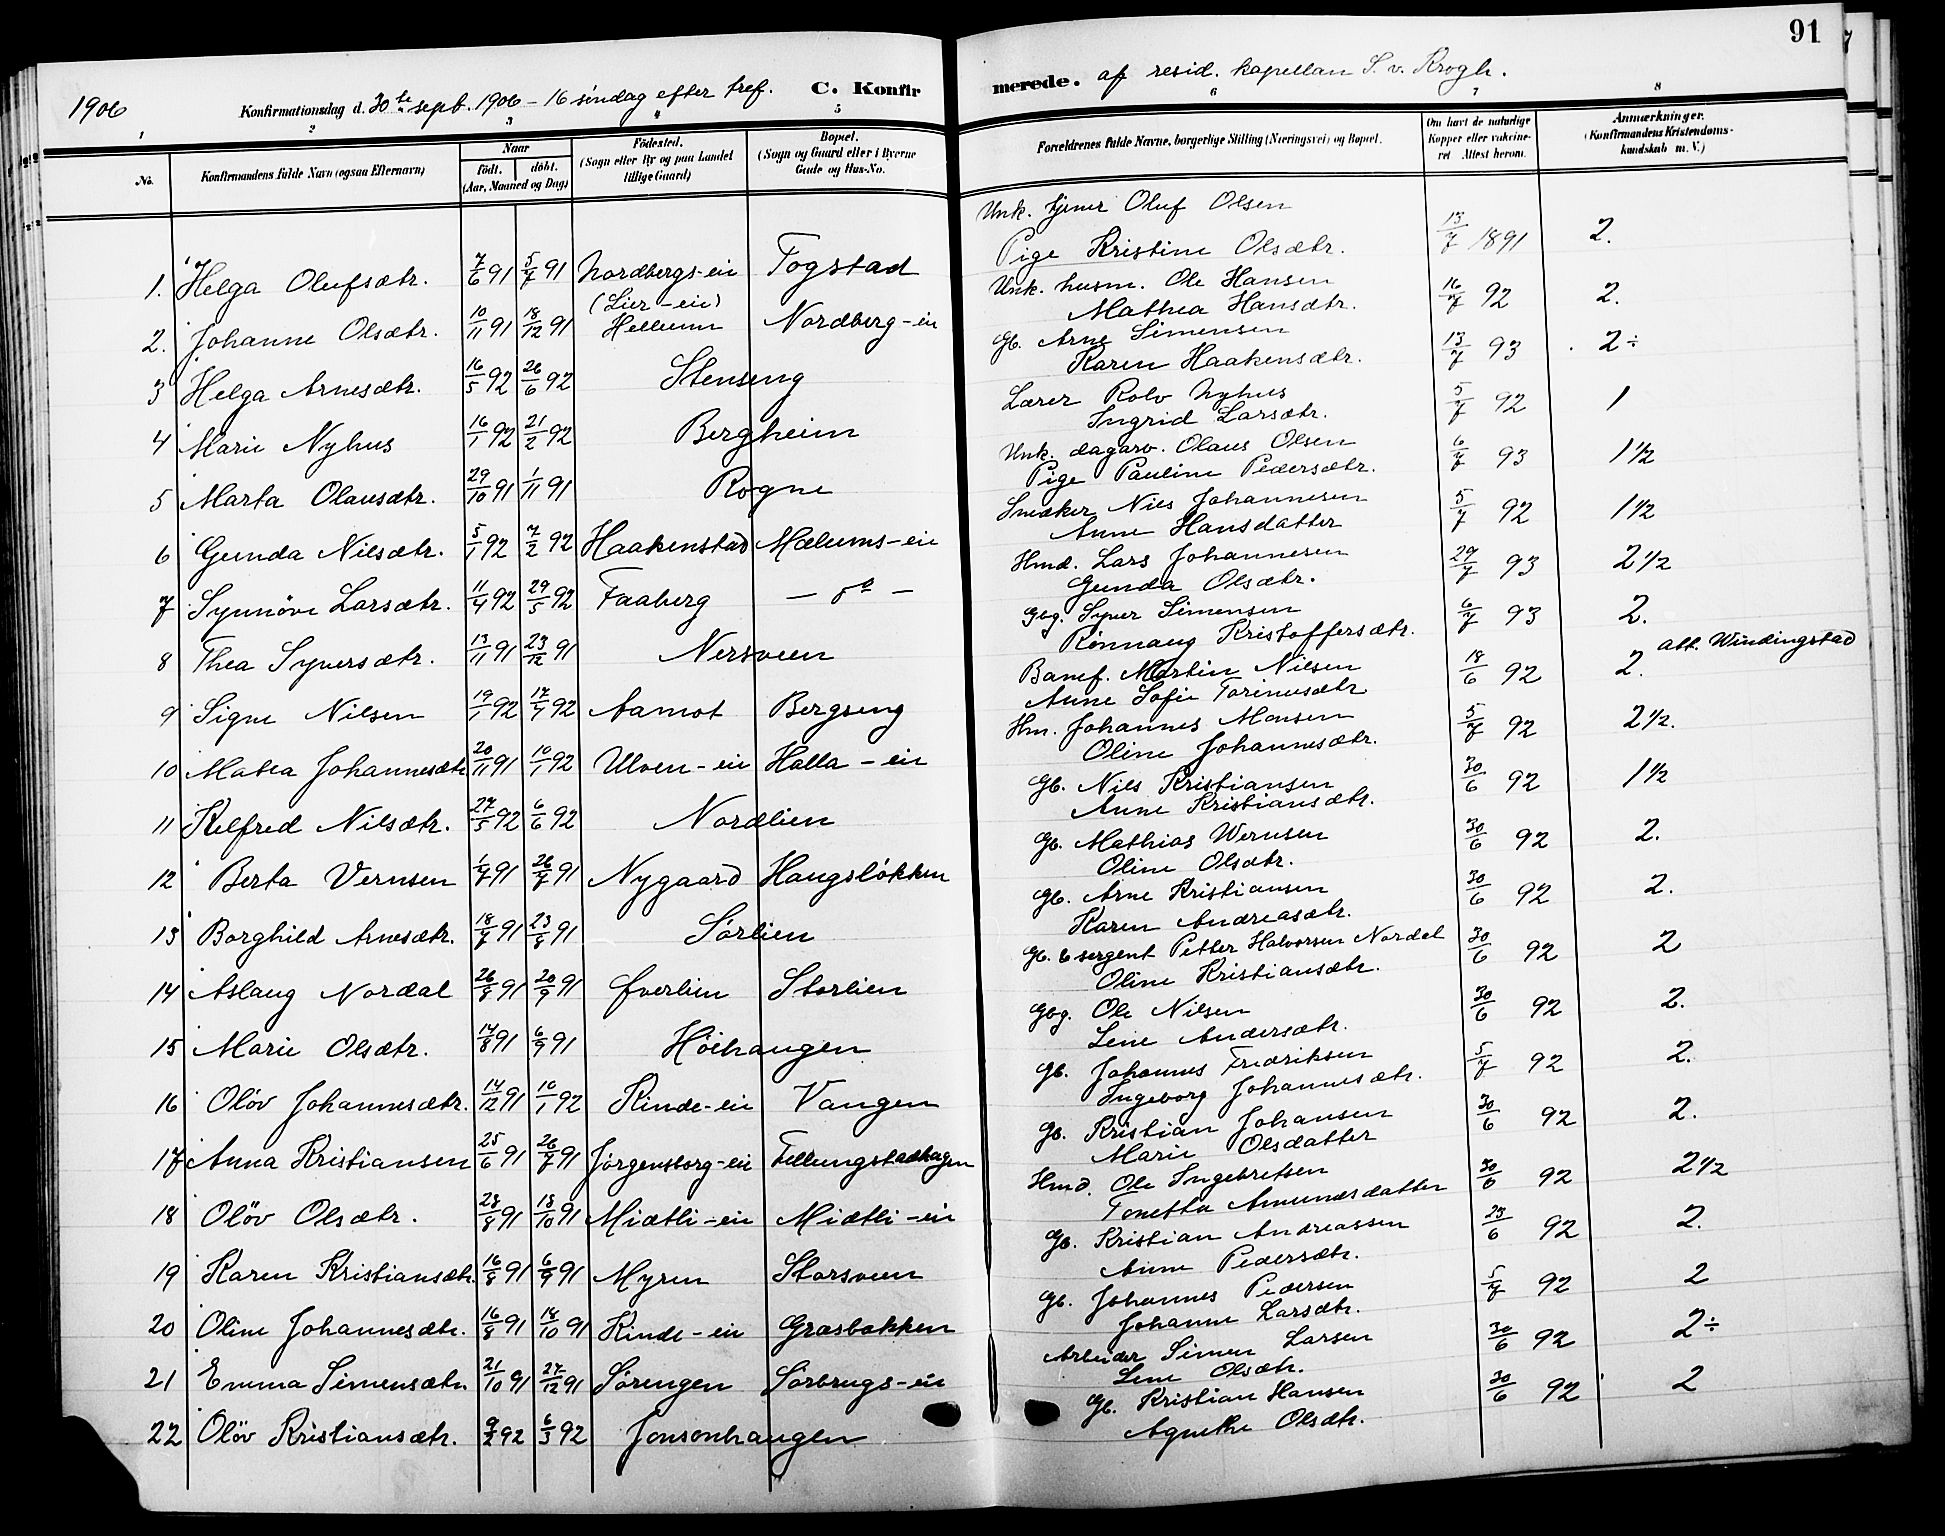 91
1906
Konfirmationsdag d. 30te sept. 1906 - 16 søndag efter tref. C. Konfirmerede. af resid. kapellan S. v. Krogh.
1 2 3 4 5 6 7 8
No. Konfirmandens fulde Navn (ogsaa Efternavn) Naar født. døbt. (Aar, Maaned og Dag) Fødested. (Sogn eller By og paa Landet tillige Gaard) Bopæl. (Sogn og Gaard eller i Byerne Gade og Hus-No. Forældrenes fulde Navne, borgerlige Stilling (Næringsvei) og Bopæl. Om havt de naturlige Kopper eller vaccineret Attest herom. Anmærkninger. (Konfirmandens Kristendomskundskab m. V.)
1. Helga Olufsdtr. 7/6 91 5/7 91 Nordbergs-eie Fogstad Unk. tjener Oluf Olsen 13/7 1891 2.
(Lier-eie) Pige Kristine Olsdtr.
2. Johanne Olsdtr. 10/11 91 18/12 91 Hellum Nordberg-eie Unk. husm. Ole Hansen 16/7 92 2.
Mathea Hansdtr.
3 Helga Arnesdtr. 16/5 92 26/6 92 Stenseng Gb. Arne Simensen 13/7 93 2÷
Karen Haakensdtr.
4 Marie Nyhus 16/1 92 21/2 92 Bergheim Lærer Rolv Nyhus 5/7 92 1
Ingrid Larsdtr.
5 Marta Olausdtr. 29/10 91 1/11 91 Rogne Unk. dagarb. Olaus Olsen 6/7 93 1½
Pige Pauline Pedersdtr.
6 Gunda Nilsdtr. 5/1 92 7/2 92 Haakenstad Mælums-eie Snedker Nils Johannesen 5/7 92 1½
Anne Hansdatter
7 Synnöve Larsdtr. 11/4 92 29/5 92 Faaberg - do - Hmd. Lars Johannesen 29/7 93 2½
Gunda Olsdtr.
8 Thea Syversdtr. 13/11 91 23/12 91 Nersveen Gbg. Syver Simensen 6/7 93 2.
Rönnaug Kristoffersdtr.
9 Signe Nilsen 19/1 92 17/4 92 Aamot Bergseng Banef. Martin Nilsen 18/6 92 2. att. Windingstad
Anne Sofie Torinusdtr
10 Matea Johannesdtr 20/11 91 10/1 92 Ulven-eie Halla-eie Hm. Johannes Monsen 5/7 92 2½.
Oline Johannesdtr.
11 Kelfred Nilsdtr. 27/5 92 6/6 92 Nordlien Gb. Nils Kristiansen 30/6 92 1½
Anne Kristiansdtr.
12 Berta Vernsen 1/7 91 26/7 91 Nygaard Haugsløkken Gb. Mathias Wernsen 30/6 92 2.
Oline Olsdtr.
13 Borghild Arnesdtr. 18/7 91 23/8 91 Sørlien Gb. Arne Kristiansen 30/6 92 2.
Karen Andreasdtr.
14 Aslaug Nordal 26/8 91 20/9 91 Øverlien Storlien Gb. & sergent Petter Halvorsen Nordal 30/6 92 2
Oline Kristiansdtr.
15 Marie Olsdtr. 14/8 91 6/9 91 Höihaugen Gbg. Ole Nilsen 30/6 92 2.
Lene Andersdtr.
16 Olöv Johannesdtr. 14/12 91 10/1 92 Rinde-eie Vangen Gb. Johannes Fredriksen 5/7 92 2.
Ingeborg Johannesdtr.
17 Anna Kristiansen 25/6 91 26/7 91 Jørgensborg-eie Fellungstadhagen Gb. Kristian Johansen 30/6 92 2.
Marie Olsdatter
18 Olöv Olsdtr. 28/8 91 18/10 91 Midtli-eie Midtli-eie Hmd. Ole Ingebretsen 30/6 92 2½
Tonetta Amundsdatter
19 Karen Kristiansdtr. 16/8 91 6/9 91 Myren Storsveen Gb. Kristian Andreassen 23/6 92 2.
Anne Pedersdtr.
20 Oline Johannesdtr. 16/8 91 18/10 91 Rinde-eie Grasbakken Gb. Johannes Pedersen 5/7 92 2
Johanne Larsdtr.
21 Emma Simensdtr. 21/10 91 27/12 91 Sörengen Sörbrugs-eie Arbeider Simen Larsen 30/6 92 2÷
Lene Olsdtr.
22 Olöv Kristiansdtr. 9/2 92 6/3 92 Jonsonhaugen Gb. Kristian Hansen 30/6 92 2
Agnethe Olsdtr.